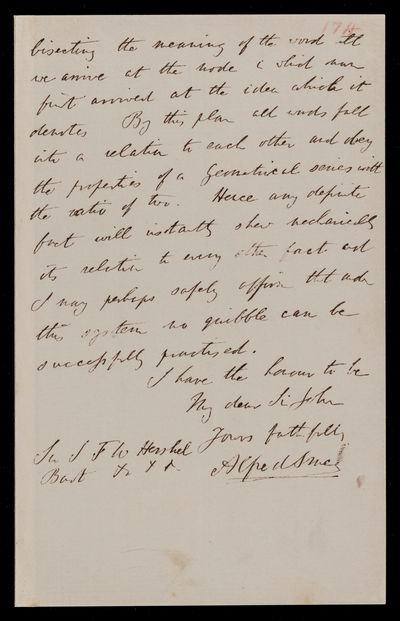 174
bisecting the meaning of the word till
we arrive at the node & which man
first arrived at the idea which it
denotes By this plan all words fall
into a relation to each other and obey
the properties of a geometrical series with
the ratio of two. Hence any definite
fact will instantly shew mechanically
its relation to every other fact and
I may perhaps safely affirm that under
this system no quibble can be
successfully practised.
I have the honour to be
My dear Sir John
Yours faithfully
Alfred Smee
Sir J F W Hershel
Bart